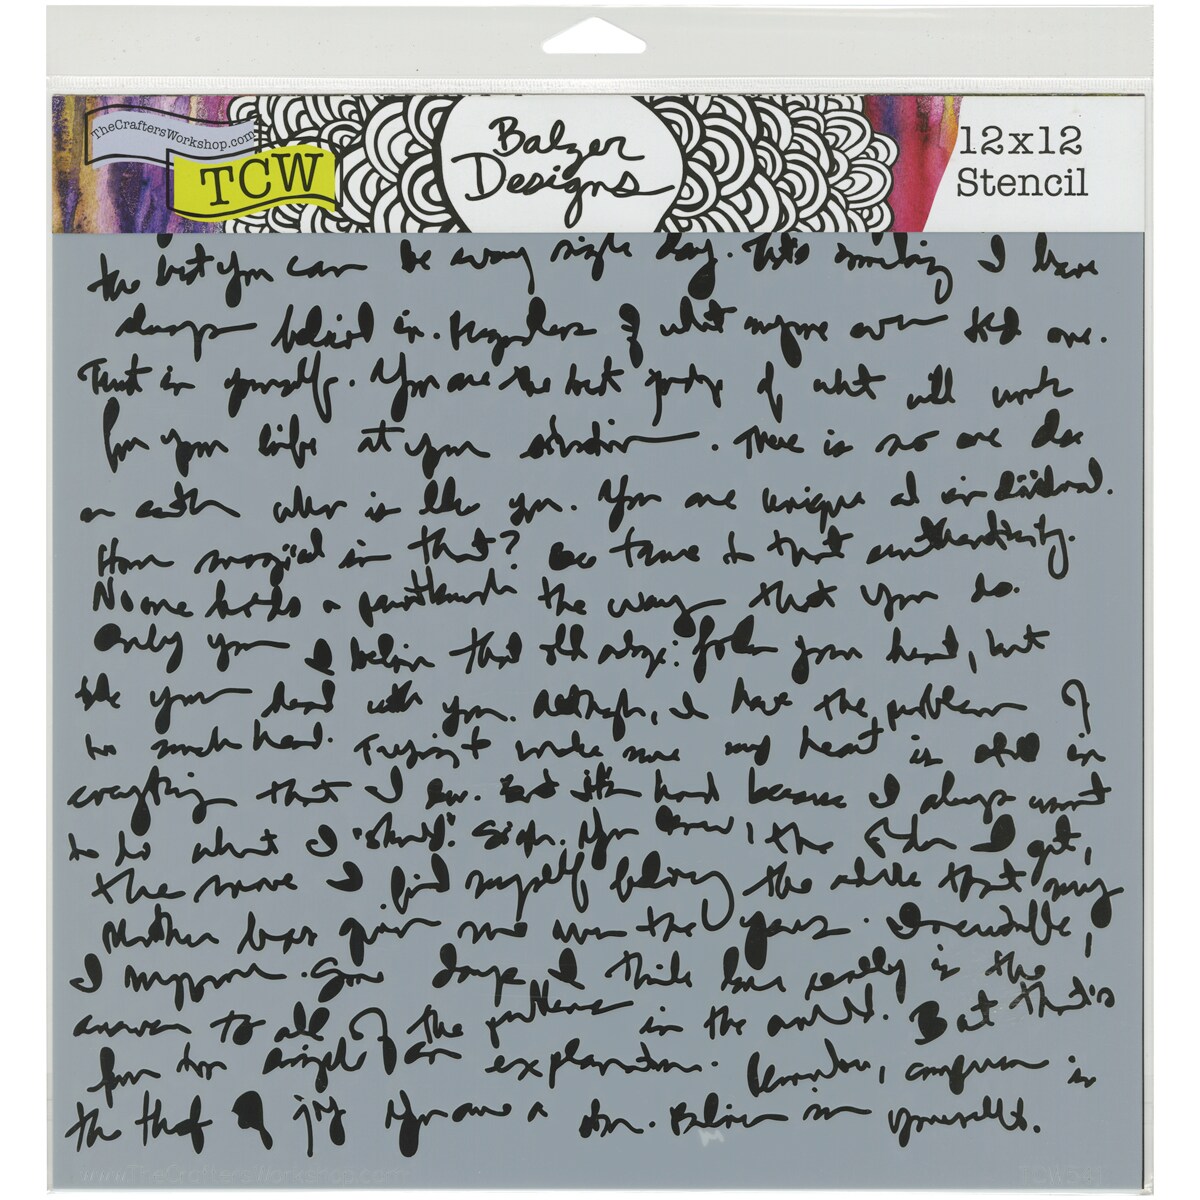 TheCraftersWorkshop.com
TCW
Balzer
Designs
12x12
Stencil
the best you can be every single day. That's something I have
always believed in. Regardless of what anyone ever told one.
Trust in yourself. You are the best judge of what will work
for you life at your situation. There is no one else
on earth who is like you. You are unique and individual.
How magical is that? Be true to that authenticity.
No one holds a paintbrush the way that you do.
Only you I believe that old adage: follow your heart, but
take your head with you. Although, I have the problem of
too much head. Trying to make sure my heart is still in
everything that I do. But it's hard because I always want
to do what I "should". Sigh. You know, the older I get,
the more I find myself following the advice that my
Mother has given me over the years. Incredible,
I suppose. Some days I think love really is the
answer to all of the problems in the world. But that's
far too simple an explanation. , confusion is
the thief of joy You are a star. Believe in yourself.
www.TheCraftersWorkshop.com